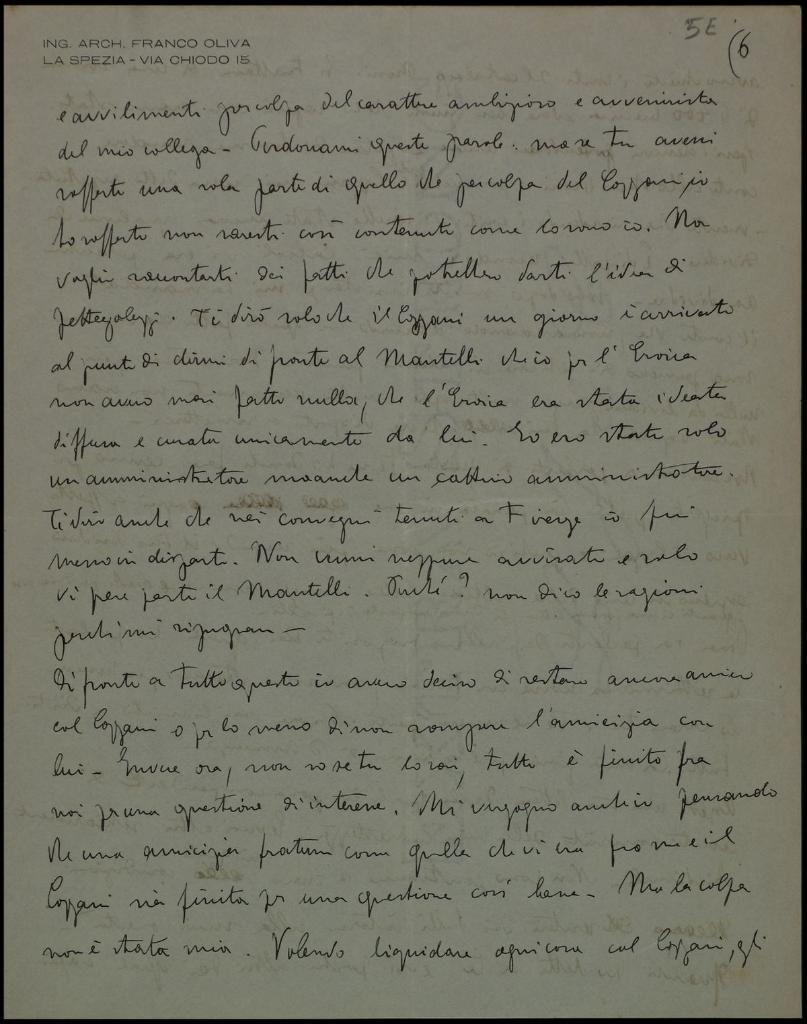 ING. ARCH. FRANCO OLIVA
LA SPEZIA - VIA CHIODO 15
5E
(6
e avvilimenti per colpa del carattere ambizioso e avvenirista
del mio collega - Perdonami queste parole. ma se tu avessi
sofferto una sola parte di quello che per colpa del Cozzani io
ho sofferto non saresti così contenuto come lo sono io. Non
voglio raccontarti dei fatti che potrebbero darti l'idea di
pettegolezzi. Ti dirò solo che il Cozzani un giorno è arrivato
al punto di dirmi di fronte al Mantelli che io per l'Eroica
non avevo mai fatto nulla, che l'Eroica era stata ideata
diffusa e curata unicamente da lui. Io ero stato solo
un amministratore ma anche un cattivo amministratore.
Ti dirò anche che nei convegni tenuti a Firenze io fui
messo in disparte. Non venni neppure avvisato e solo
vi prese parte il Mantelli. Perché? non dico le ragioni
perché mi ripugnano -
Di fronte a tutto questo io avevo deciso di restare ancora amico
col Cozzani o per lo meno di non rompere l'amicizia con
lui - Invece ora, non so se tu lo sai, tutto è finito fra
noi per una questione di interesse. Mi vergogno anch'io pensando
che una amicizia fraterna come quella che vi era fra me e il
Cozzani sia finita per una questione così bassa - Ma la colpa
non è stata mia. Volendo liquidare ogni cosa col Cozzani, gli